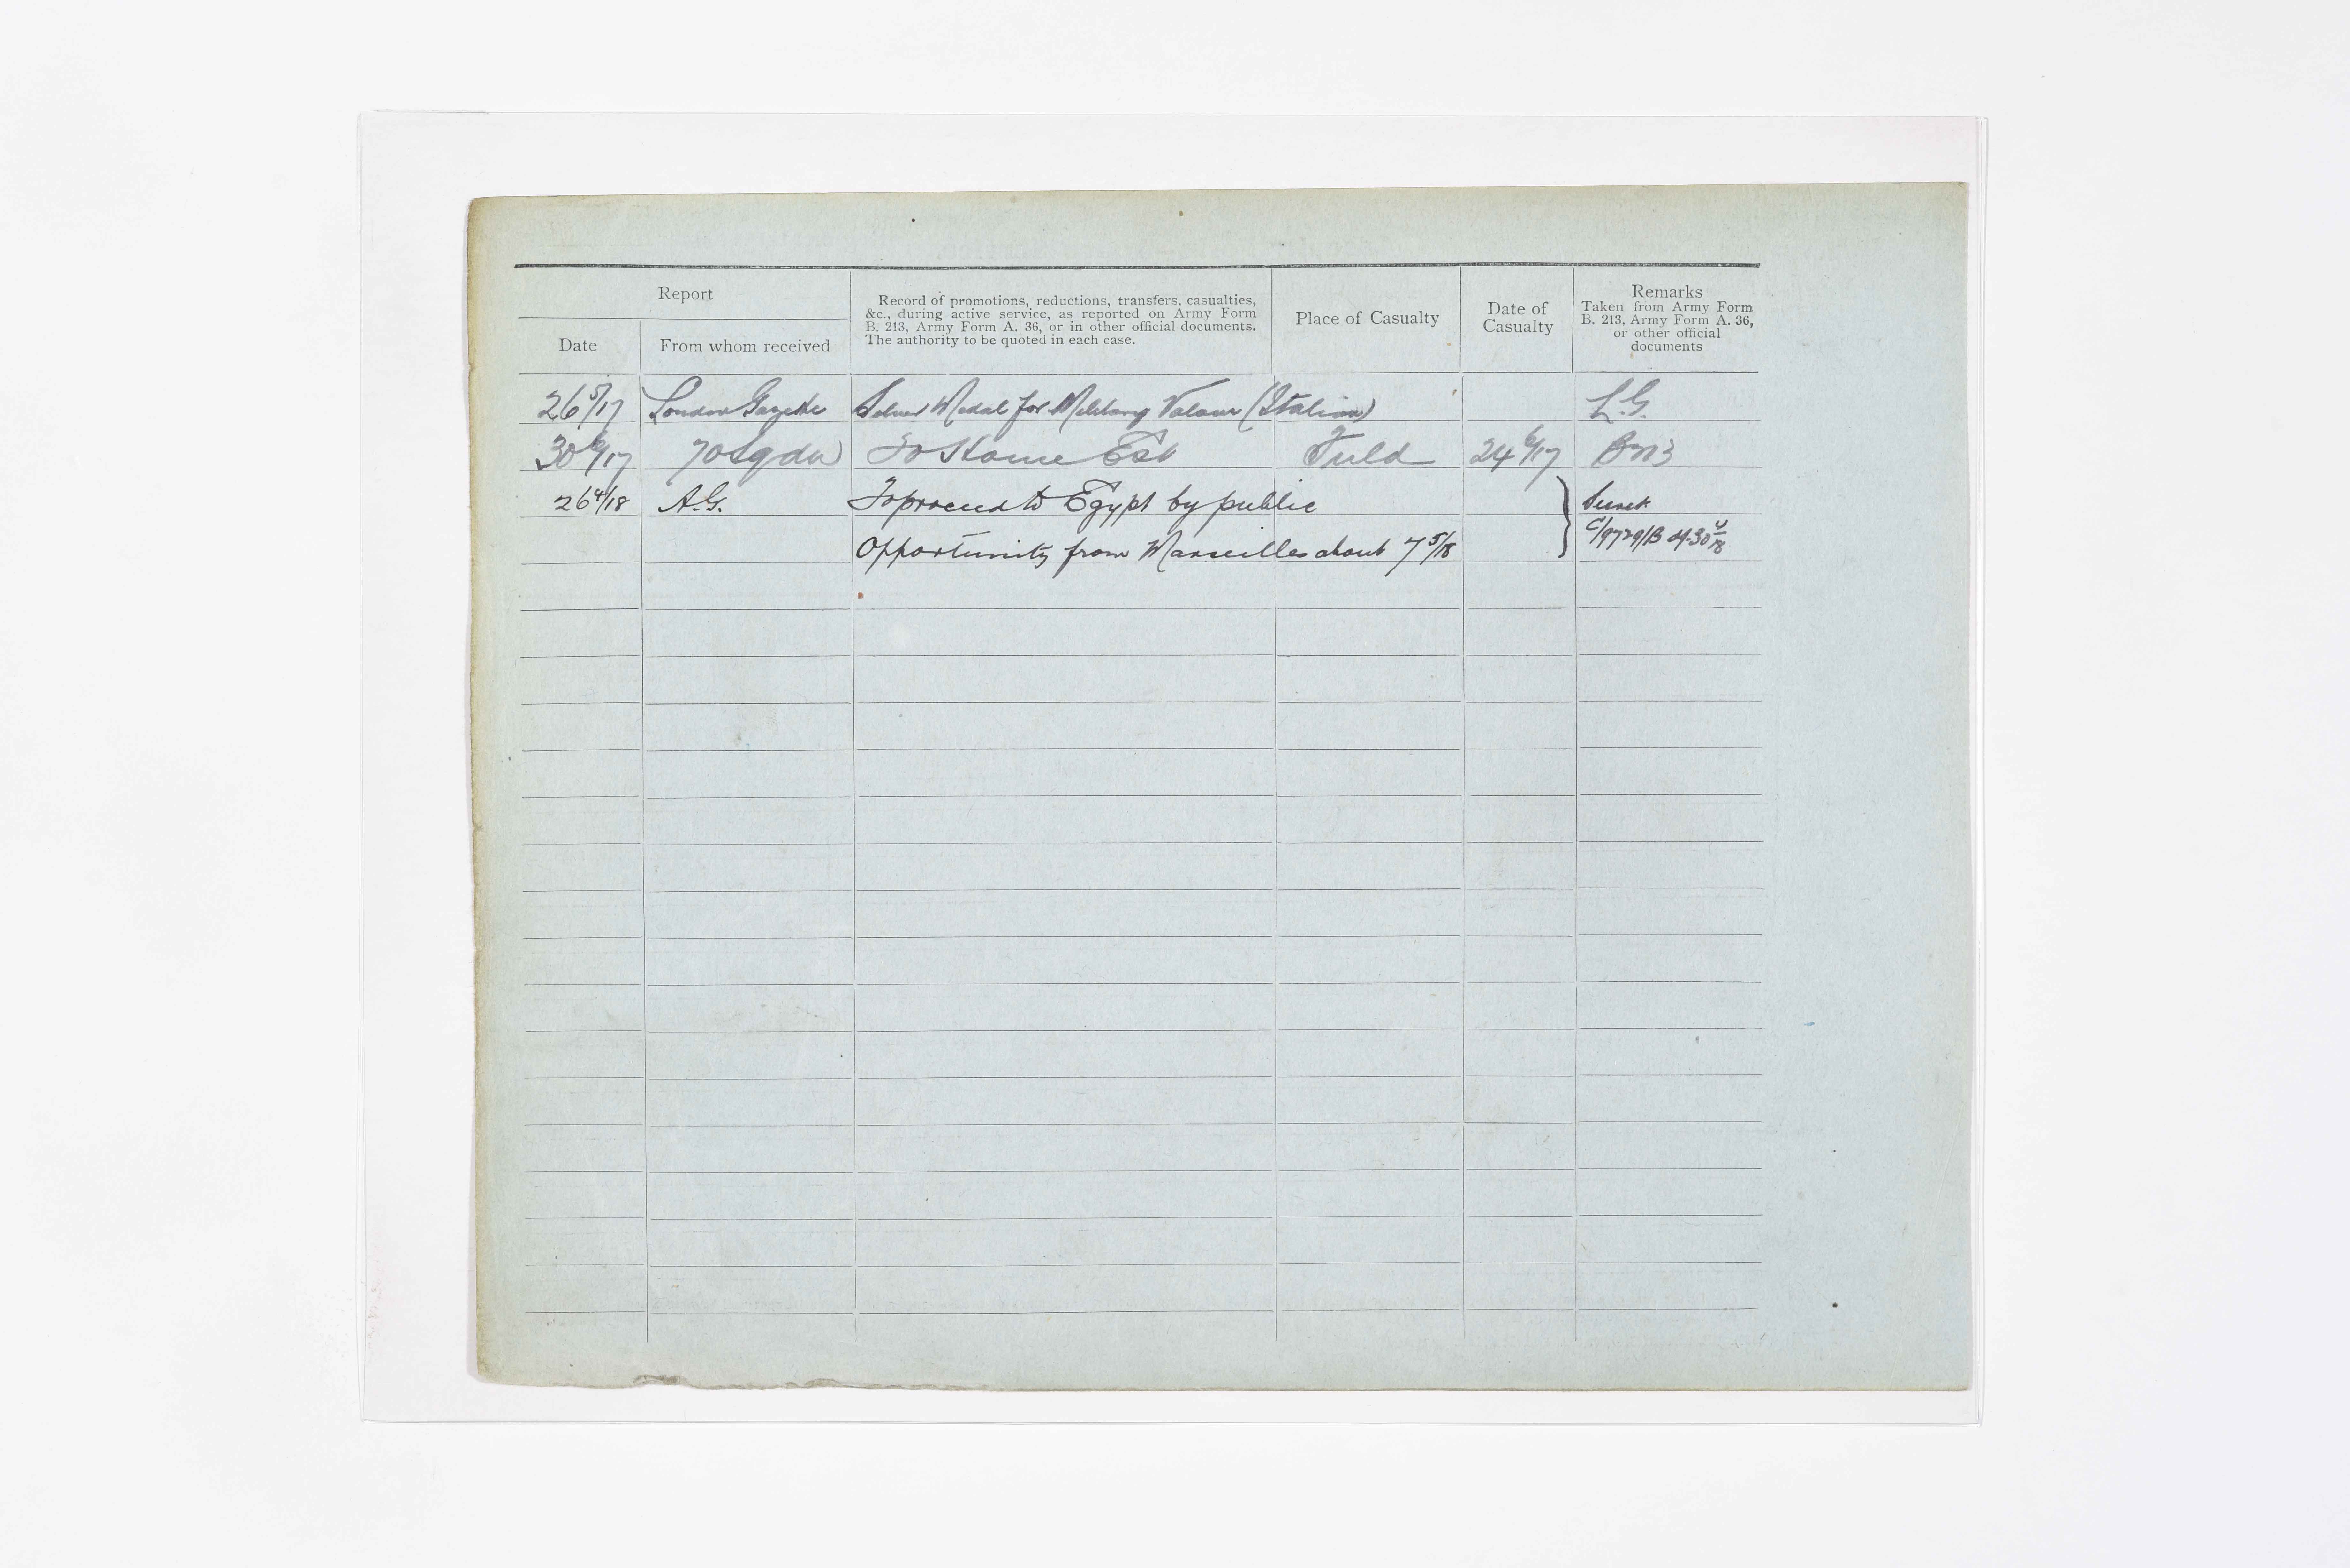 Report
Date
From whom received
Record of promotions, reductions, transfers, casualties,
&c., during active service, as reported on Army Form
B. 213, Army Form A. 36, or in other official documents.
The authority to be quoted in each case.
Place of Casualty
Date of
Casualty
Remarks
Taken from Army Form
B. 213, Army Form A. 36,
or other official
documents
26 5/17 London Gazette Silver Medal for Military Valour (Italian) L.G.
30 6/17 70 Sqdn To Home Est Field 24 6/17 B213
26 4/18 A.G. To proceed to Egypt by public Secret
Opportunity from Marseilles about 7 5/18 C/9729/B d/ 30 4/18